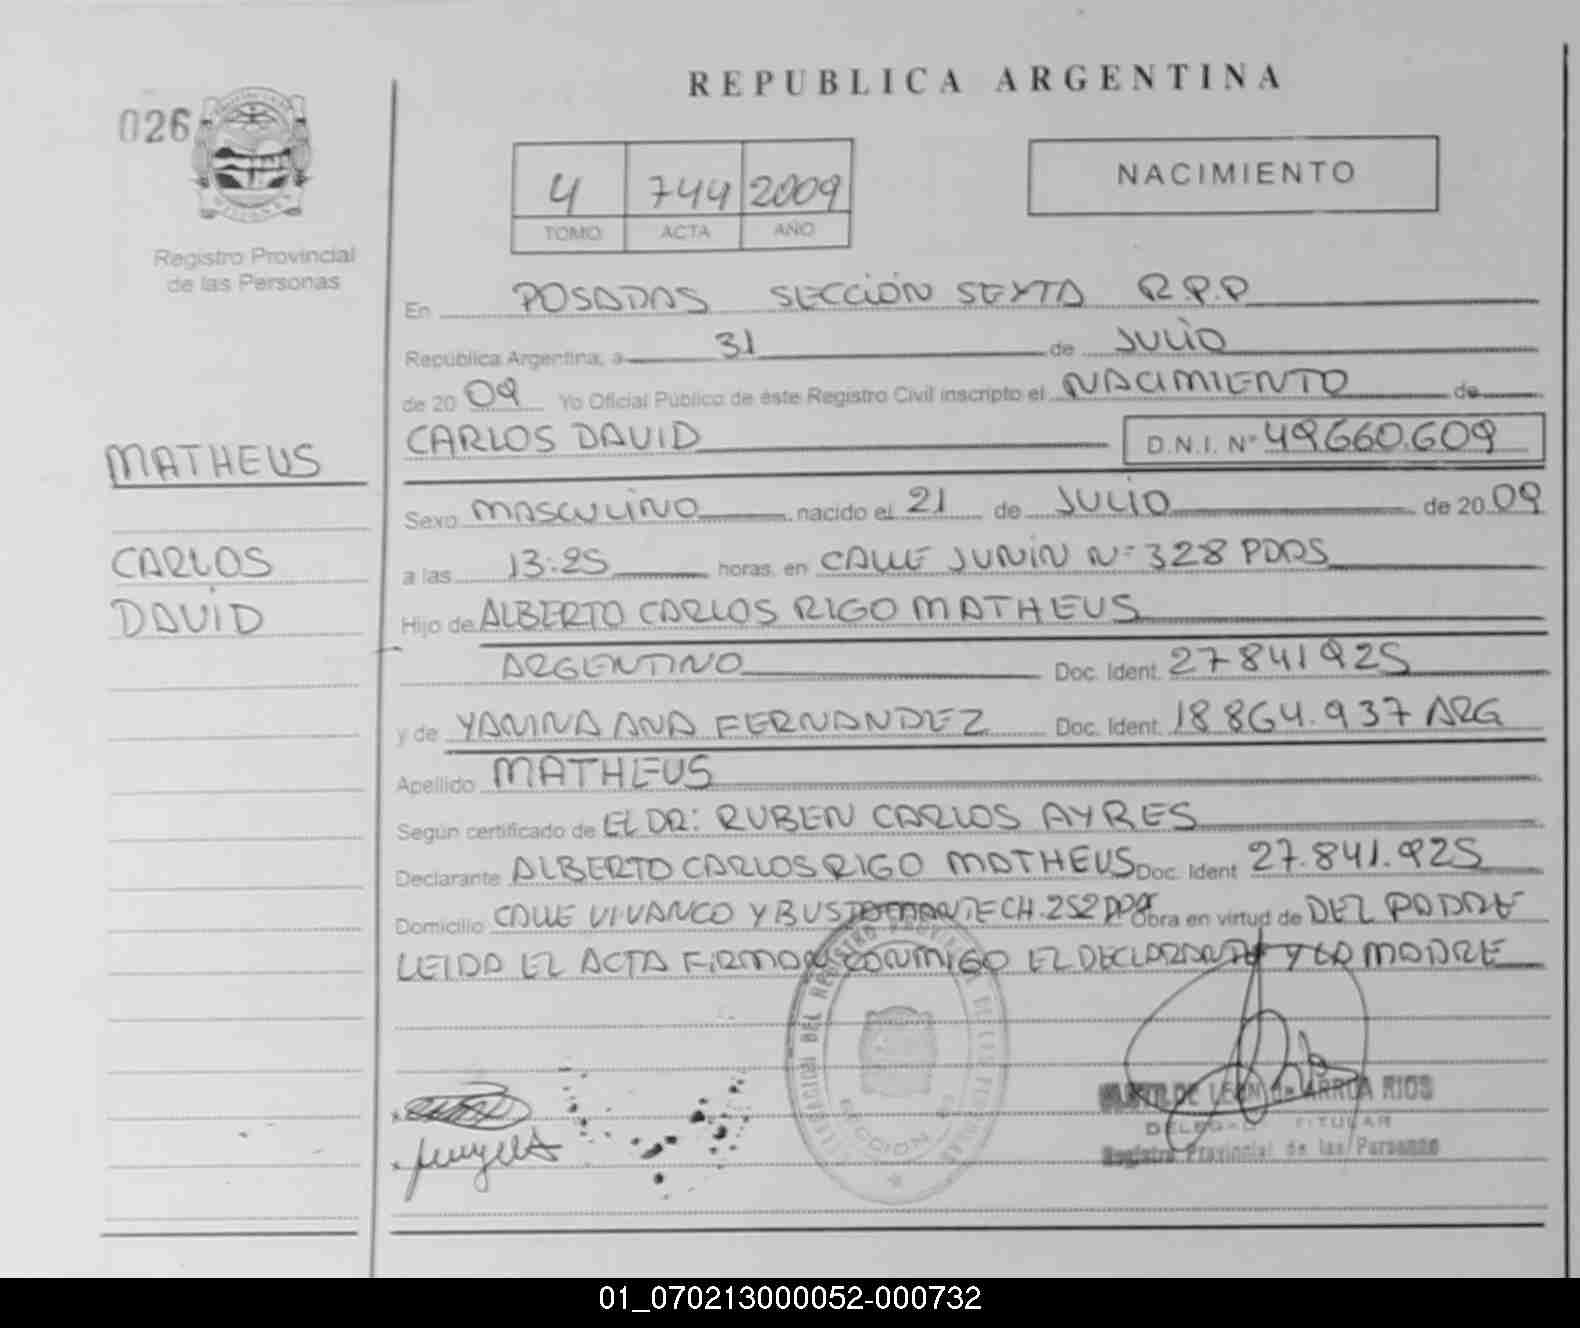 REPUBLICA ARGENTINA
026
NACIMIENTO
4 744 2009
TOMO ACTA AÑO
Registro Provincial
de las Personas
En POSADAS SECCIÓN SEXTA R.P.P
República Argentina, a 31 de JULIO
de 20 09 Yo Oficial Público de éste Registro Civil inscripto el NACIMIENTO de
MATHEUS
CARLOS DAVID D.N.I. Nº 49660.609
Sexo MASCULINO nacido el 21 de JULIO de 20 09
CARLOS
a las 13:25 horas, en CALLE JUNIN Nº 328 PDAS
DAVID
Hijo de ALBERTO CARLOS RIGO MATHEUS
ARGENTINO Doc. Ident. 27841925
y de YANINA ANA FERNANDEZ Doc. Ident. 18864.937 ARG
Apellido MATHEUS
Según certificado de EL DR: RUBEN CARLOS AYRES
Declarante ALBERTO CARLOS RIGO MATHEUS Doc. Ident 27.841.925
Domicilio CALLE VIVANCO Y BUSTAMANTE CH.252 PDAS Obra en virtud de DEL PADRE
LEIDA EL ACTA FIRMAN CONMIGO EL DECLARANTE Y LA MADRE
DELEGACION DEL REGISTRO PROVINCIAL DE LAS PERSONAS
SECCION
DE LEON de ARRUA RIOS
TITULAR
Registro Provincial de las Personas
01_070213000052-000732